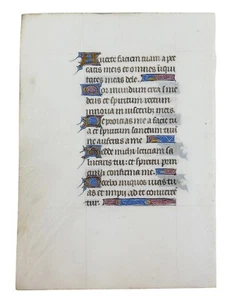 Averte faciem tuam a pec
catis meis et omnes iniqui
tates meas dele.
Cor mundum crea in me
deus et spiritum rectum
innova in visceribus meis.
Ne proicias me a facie tu
a et spiritum sanctum tuū
ne auferas a me
Redde michi leticiam sa
lutaris tui et spiritu prin
cipali confirma me.
Docebo iniquos vias tu
as et impii ad te converte
tur.